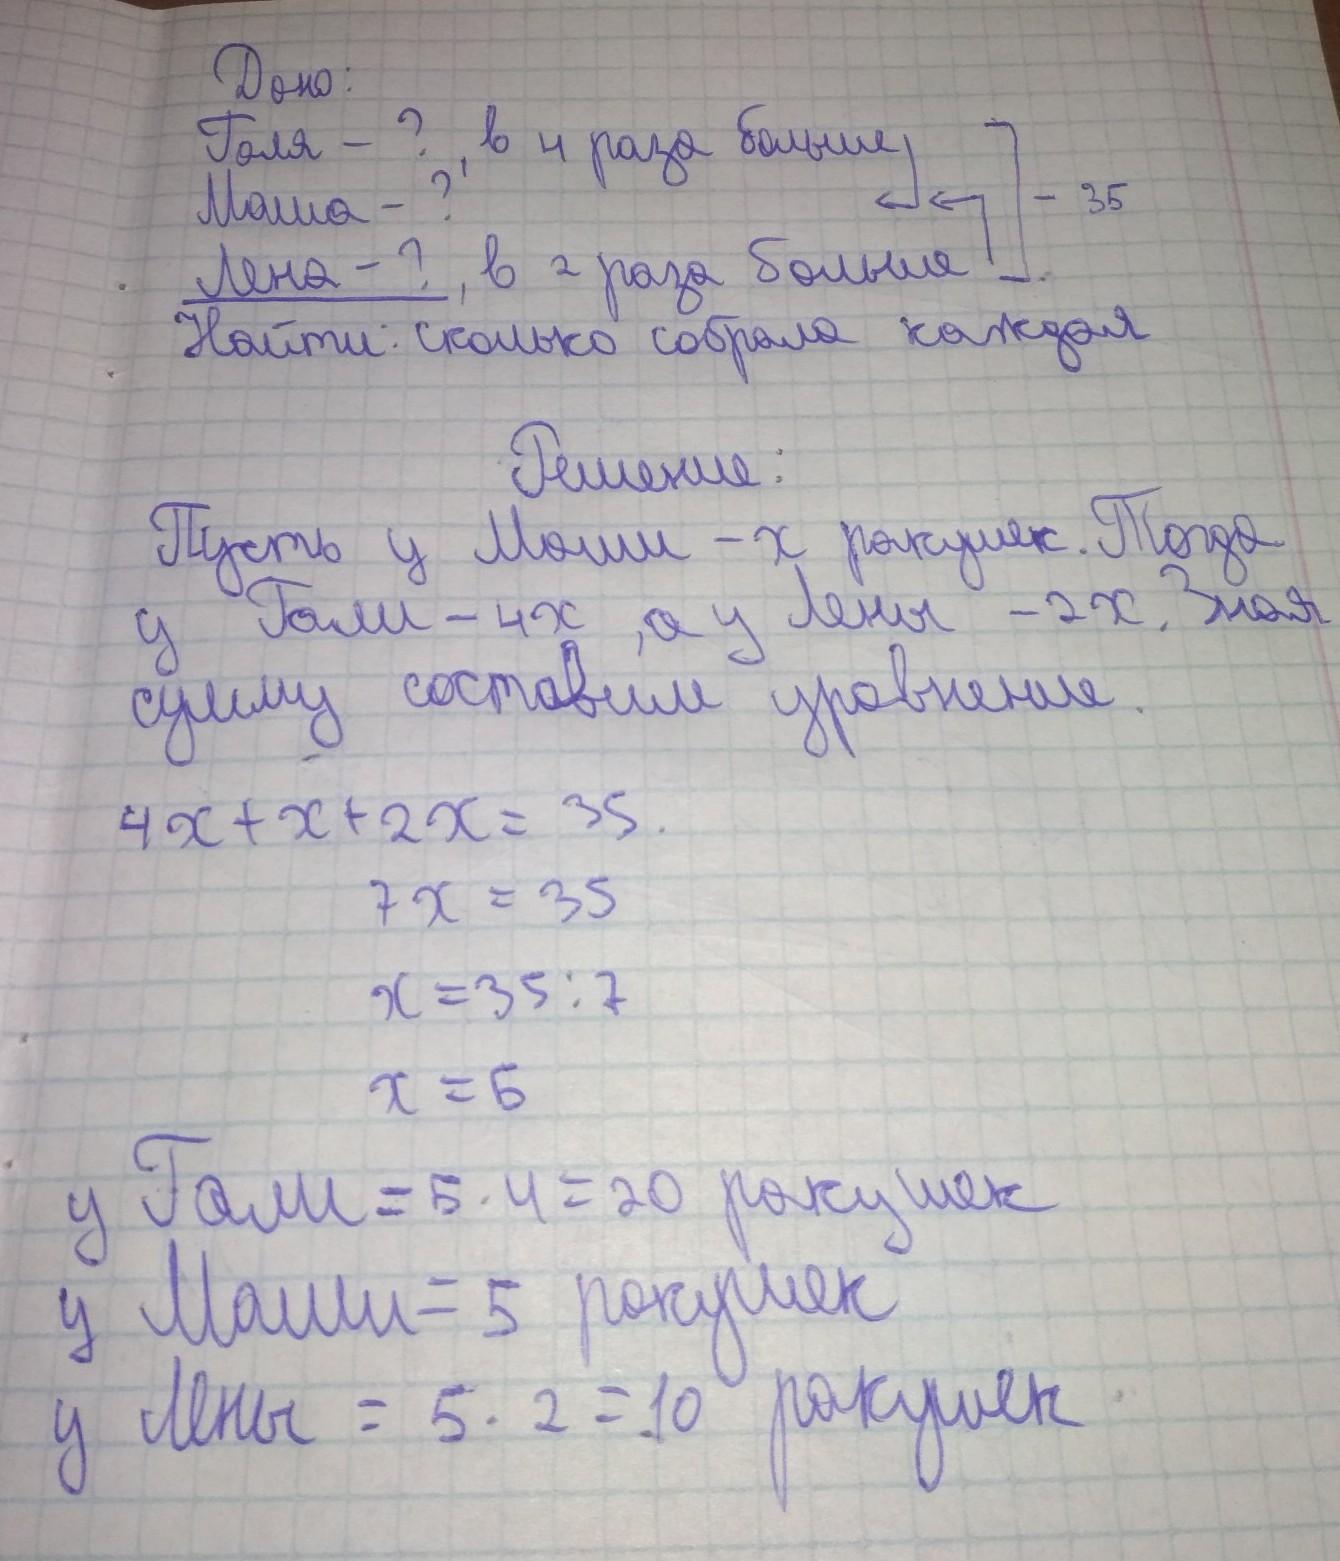 Дано:
Галя - ?, в 4 раза больше
Маша - ?
- 35
Лена - ?, в 2 раза больше
Найти: сколько собрала каждая
Решение:
Пусть у Маши - x ракушек. Тогда
у Гали - 4x, а у Лены - 2x. Зная
сумму составим уравнение.
4x + x + 2x = 35.
7x = 35
x = 35 : 7
x = 5
у Гали = 5 · 4 = 20 ракушек
у Маши = 5 ракушек
у Лены = 5 · 2 = 10 ракушек